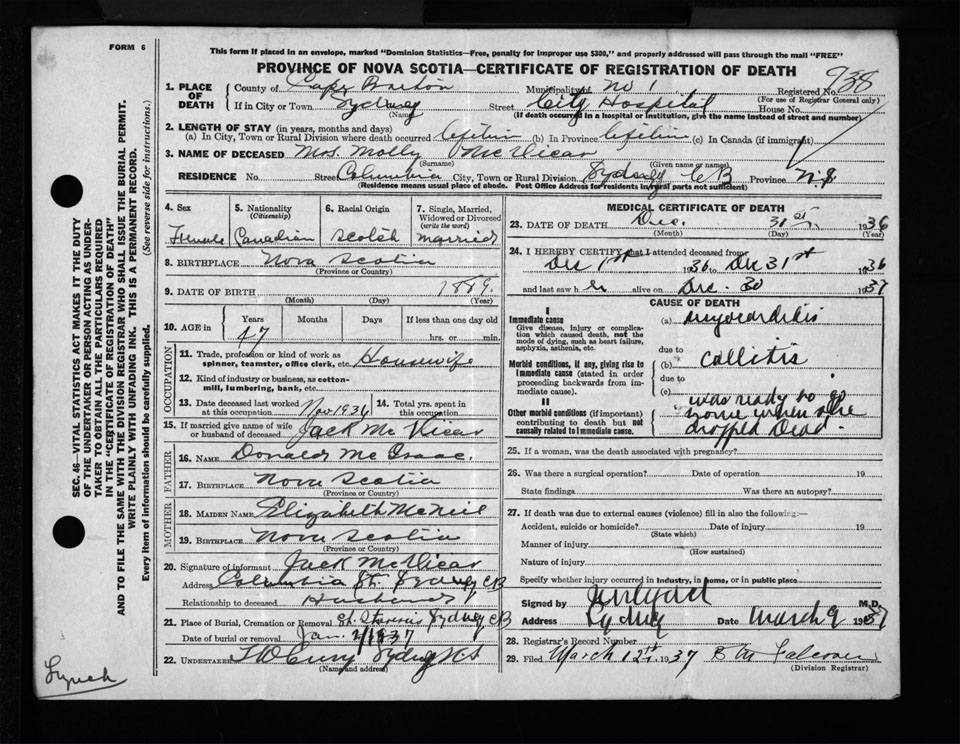 FORM 6
This form if placed in an envelope, marked "Dominion Statistics—Free, penalty for improper use $300," and properly addressed will pass through the mail "FREE"
PROVINCE OF NOVA SCOTIA—CERTIFICATE OF REGISTRATION OF DEATH
738
1. PLACE OF DEATH
County of Cape Breton Municipality of No 1 Registered No.
(For use of Registrar General only)
If in City or Town Sydney Street City Hospital House No.
(Name) (If death occurred in a hospital or institution, give the name instead of street and number)
2. LENGTH OF STAY (in years, months and days)
(a) In City, Town or Rural Division where death occurred lifetime (b) In Province lifetime (c) In Canada (if immigrant)
3. NAME OF DECEASED Mrs Molly McVicar
(Surname) (Given name or names)
RESIDENCE No. Street Columbia City, Town or Rural Division Sydney CB Province N.S
(Residence means usual place of abode. Post Office Address for residents in rural parts not sufficient)
4. Sex Female
5. Nationality (Citizenship) Canadian
6. Racial Origin Scotch
7. Single, Married, Widowed or Divorced (write the word) married
8. BIRTHPLACE Nova Scotia
(Province or Country)
9. DATE OF BIRTH 1889
(Month) (Day) (Year)
10. AGE in Years Months Days If less than one day old
47 hrs. or min.
OCCUPATION
11. Trade, profession or kind of work as spinner, teamster, office clerk, etc. Housewife
12. Kind of industry or business, as cotton-mill, lumbering, bank, etc.
13. Date deceased last worked at this occupation Nov 1936
14. Total yrs. spent in this occupation
15. If married give name of wife or husband of deceased Jack McVicar
FATHER
16. NAME Donald McIsaac
17. BIRTHPLACE Nova Scotia
(Province or Country)
MOTHER
18. MAIDEN NAME Elizabeth McNeil
19. BIRTHPLACE Nova Scotia
(Province or Country)
20. Signature of informant Jack McVicar
Address Columbia St. Sydney CB
Relationship to deceased Husband
21. Place of Burial, Cremation or Removal Sydney CB
Date of burial or removal Jan. 2/1937
22. UNDERTAKER Sydney N.S
(Name and address)
MEDICAL CERTIFICATE OF DEATH
23. DATE OF DEATH Dec. 31st, 1936
(Month) (Day) (Year)
24. I HEREBY CERTIFY that I attended deceased from
Dec 1st 1936 to Dec 31st 1936
and last saw her alive on Dec. 30 1937
CAUSE OF DEATH
I
Immediate cause
Give disease, injury or complication which caused death, not the mode of dying, such as heart failure, asphyxia, asthenia, etc.
(a) myocarditis
due to
Morbid conditions, if any, giving rise to immediate cause (stated in order proceeding backwards from immediate cause).
(b) Collitis
due to
(c)
II
Other morbid conditions (if important) contributing to death but not causally related to immediate cause.
was ready to go
home when she
dropped Dead.
25. If a woman, was the death associated with pregnancy?
26. Was there a surgical operation? Date of operation 19
State findings Was there an autopsy?
27. If death was due to external causes (violence) fill in also the following:—
Accident, suicide or homicide? Date of injury 19
(State which)
Manner of injury
(How sustained)
Nature of injury
Specify whether injury occurred in industry, in home, or in public place
Signed by M.D.
Address Sydney Date March 9 1937
28. Registrar's Record Number
29. Filed March 12th 1937
(Division Registrar)
SEC. 46—VITAL STATISTICS ACT MAKES IT THE DUTY
OF THE UNDERTAKER OR PERSON ACTING AS UNDER-
TAKER TO OBTAIN ALL THE PARTICULARS REQUIRED
IN THE "CERTIFICATE OF REGISTRATION OF DEATH"
AND TO FILE THE SAME WITH THE DIVISION REGISTRAR WHO SHALL ISSUE THE BURIAL PERMIT.
WRITE PLAINLY WITH UNFADING INK. THIS IS A PERMANENT RECORD.
Every item of information should be carefully supplied. (See reverse side for instructions.)
Lynch